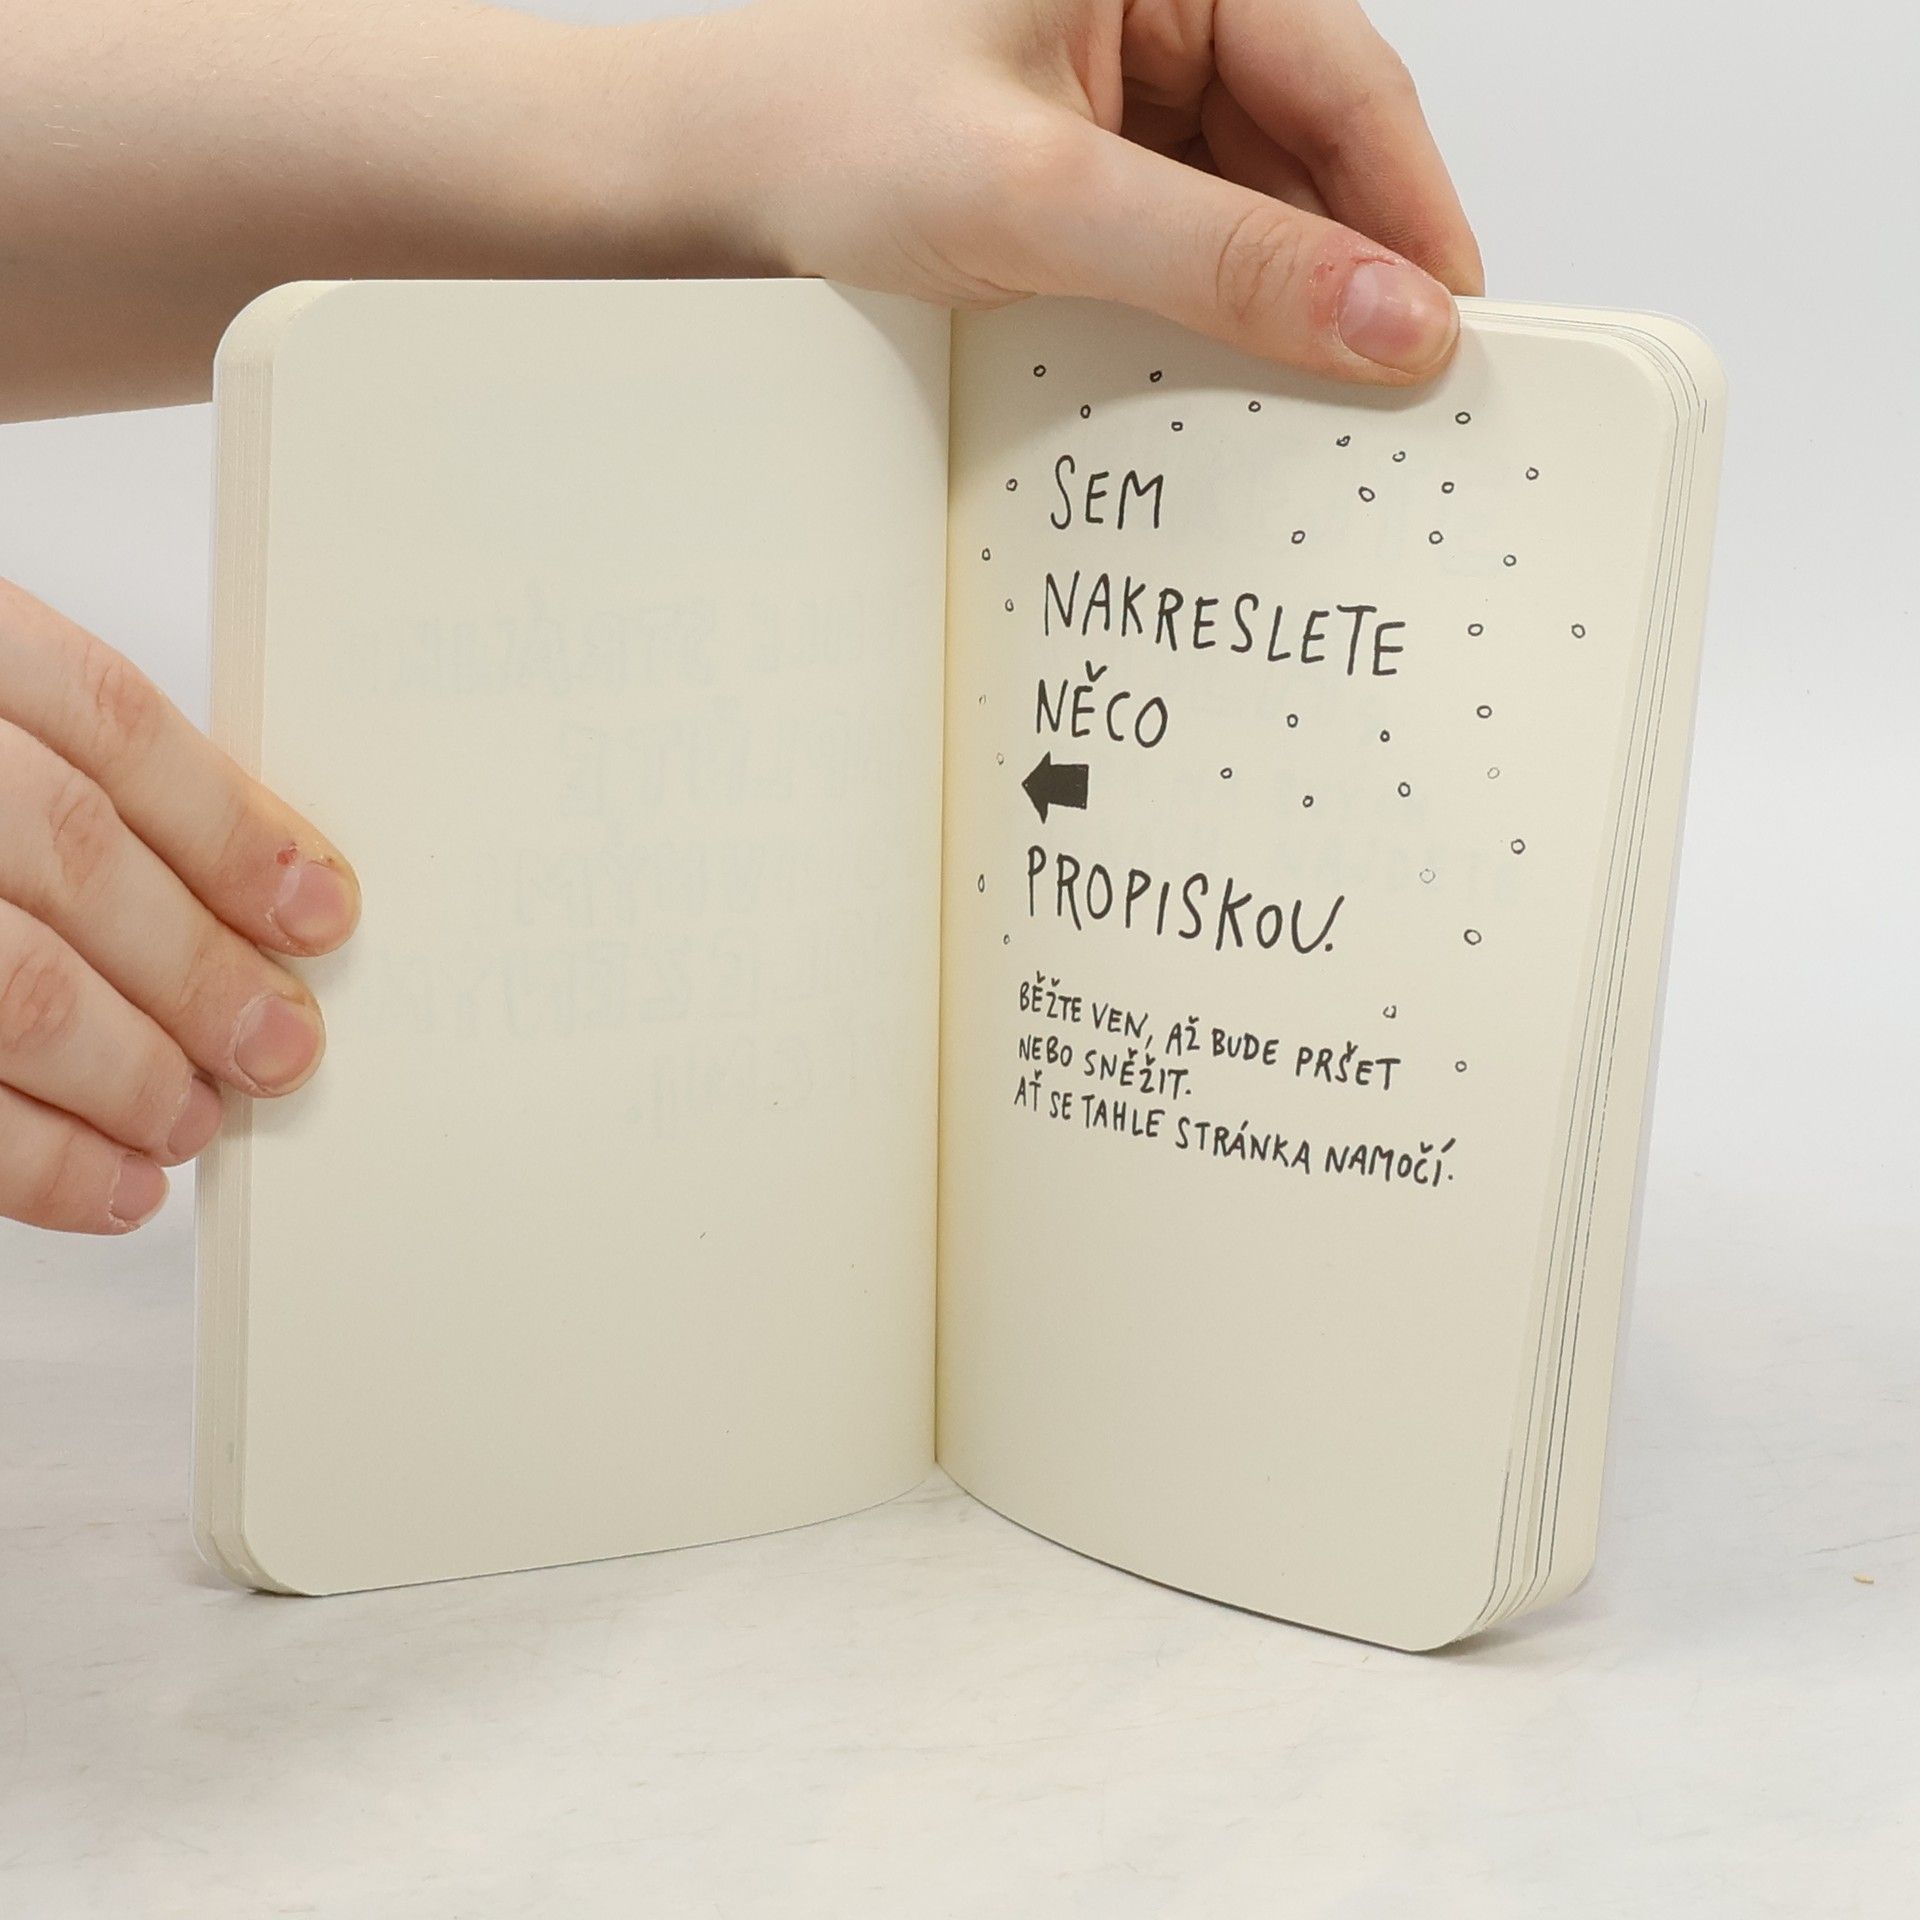 SEM
NAKRESLETE
NĚCO
PROPISKOU.
BĚŽTE VEN, AŽ BUDE PRŠET
NEBO SNĚŽIT.
AŤ SE TAHLE STRÁNKA NAMOČÍ.